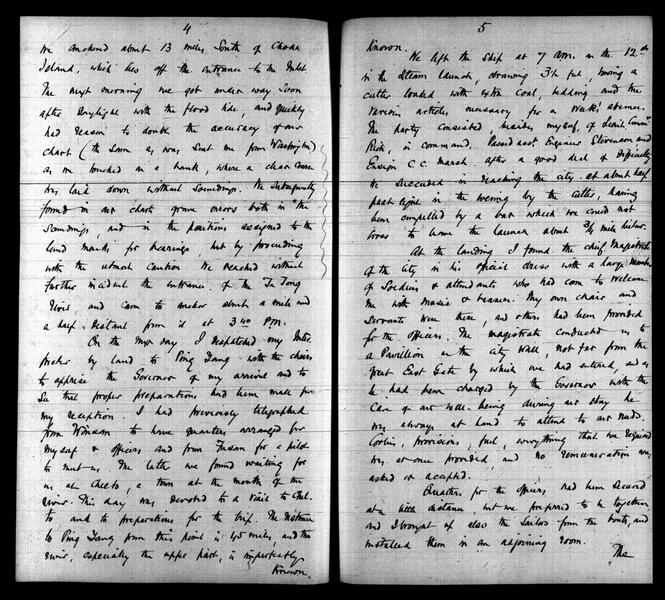 4
We anchored about 13 miles South of Choda
Island, which lies off the entrance to the Inlet
The next morning we got under way soon
after daylight with the flood tide, and quickly
had reason to doubt the accuracy of our
chart (the same as was sent me from Washington)
as we touched in a bank, where a clear
was laid down without soundings. We subsequently
found in our chart grave errors both in the
soundings, and in the positions assigned to the
land marks for bearings, but by proceeding
with the utmost caution we reached without
further incident the entrance of the Ta Tong
River, and came to anchor about a mile and
a half distant from it at 3 40 P.M.
On the day I dispatched my Inter-
preter by land to Ping Yang with the chairs
to apprise the Governor of my arrival and to
see that proper preparations had been made for
my reception. I had previously telegraphed
from to have quarters arranged for
myself & officers and from Fusan for a pilot
to meet us. The latter we found waiting for
us at a town at the mouth of the
river. This day was devoted to a visit to
to and to preparations for the trip. The distance
to Ping Yang from this point is 45 miles, and the
river, especially the upper part, is imperfectly
Known.
5
Known.
We left the ship at 7 am. on the 12th
in the steam launch, drawing 3½ feet, towing a
cutter loaded with extra coal, bedding and the
various articles necessary for a week's absence.
The party consisted, besides myself, of Lieut. Comm'r
in command, Passed asst. Engineer Stevenson and
Ensign C. C. Marsh. After a good deal of difficulty
we succeeded in reaching the city at about half
past in the evening by the cutter, having
been compelled by a bar which we could not
cross to leave the launch about ¾ mile below.
At the landing I found the chief Magistrate
of the City in his official dress with a large number
of soldiers & attendants who had come to welcome
me with music & banners. My own chair and
servants were here, and others had been provided
for the officers. The magistrate conducted us to
a Pavillion on the city wall, not far from the
great East Gate by which we had entered, and as
he had been charged by the Governor with the
care of our well-being during our stay he
was always at hand to attend to our needs.
Coolies, provisions, fuel, everything that we required
was at once provided, and no remuneration was
asked or accepted.
Quarters for the officers, had been secured
at a little distance but we preferred to be together,
and I brought up also the sailors from the boats, and
installed them in an adjoining room.
The